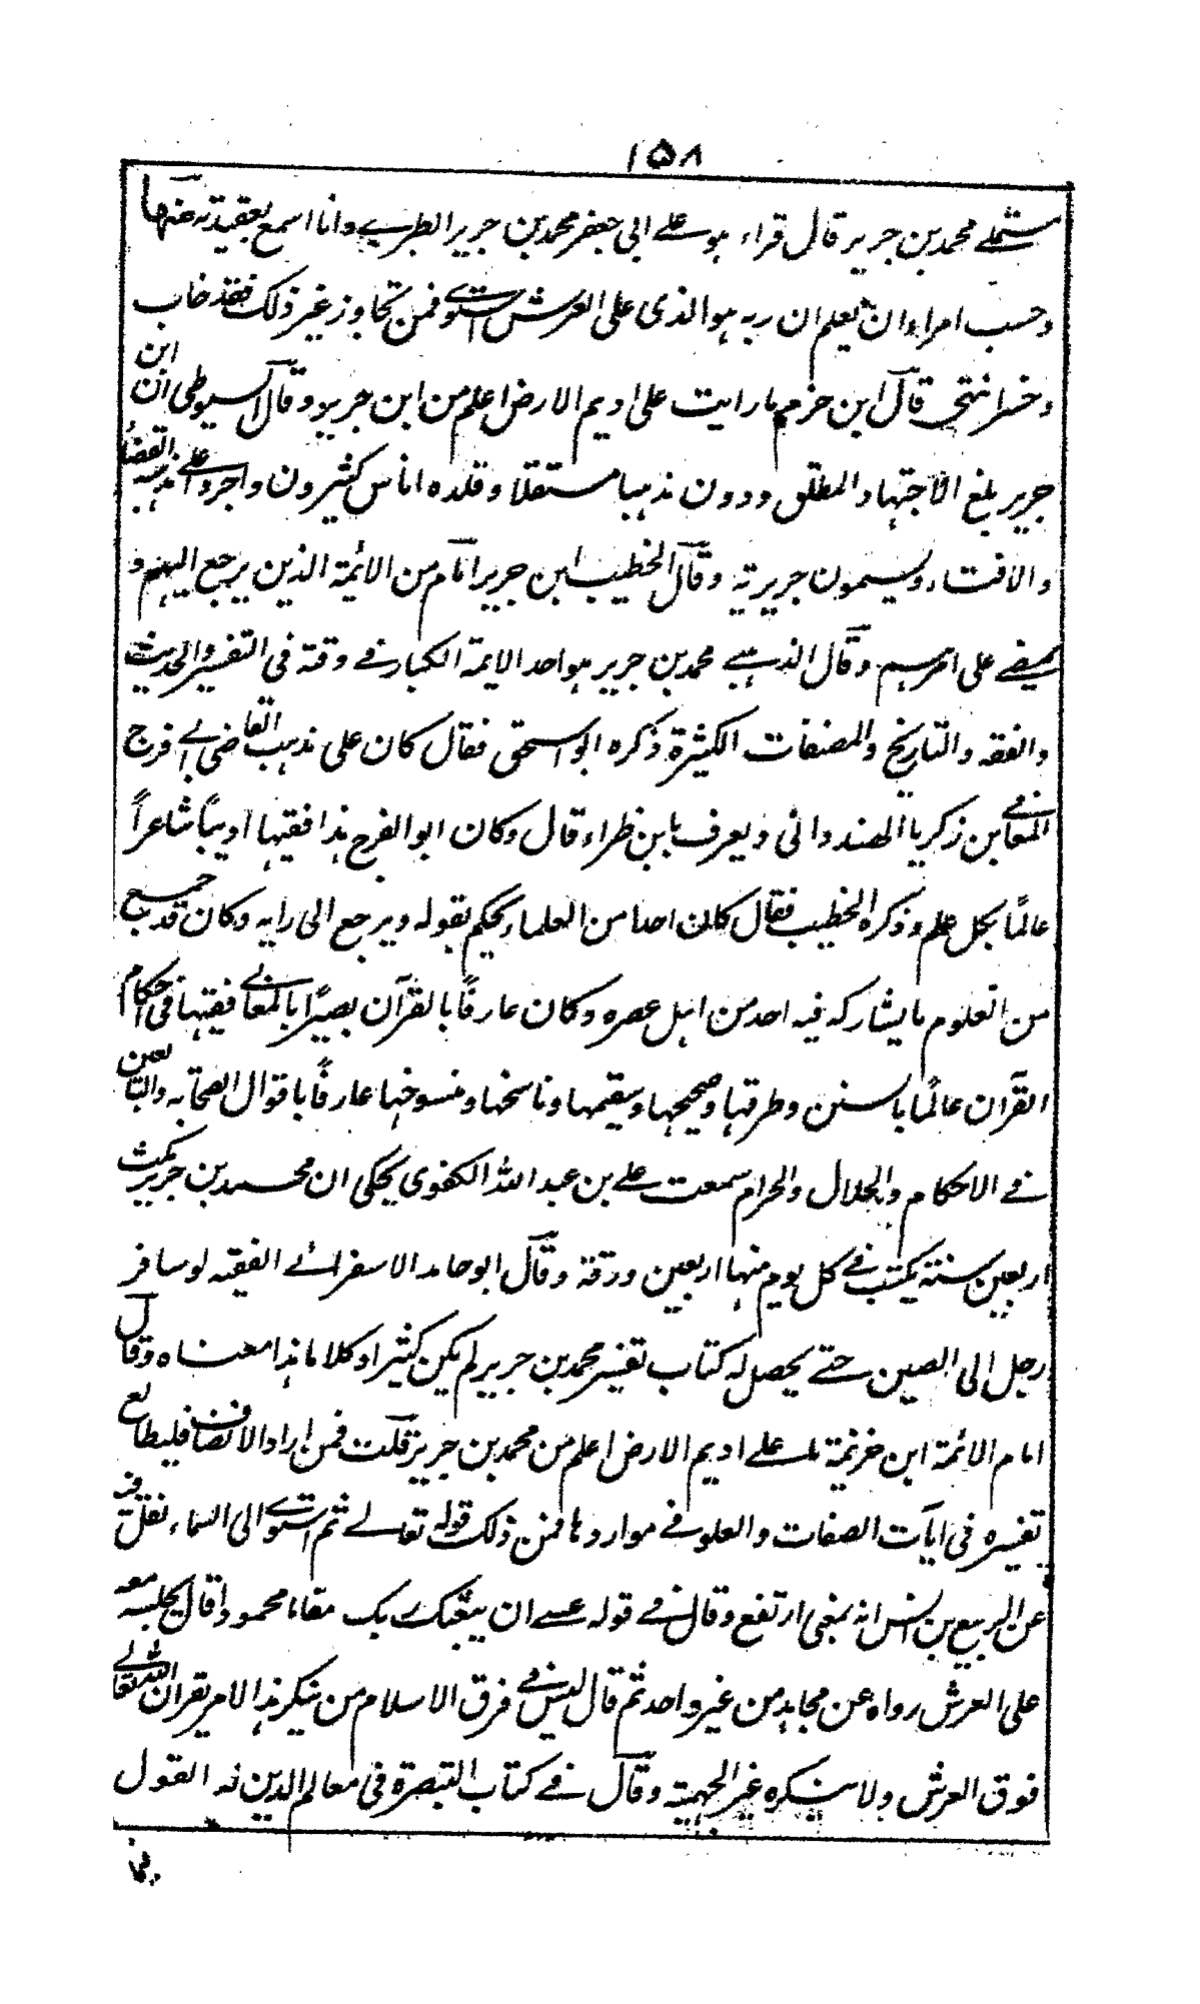 ۱۵۸
مستملے محمد بن جریر قال قراء ہو علے ابی جعفر محمد بن جریر الطبرے وانا اسمع بعقیدتہ فیہا
وحسب امراء ان یعلم ان ربہ ہو الذی علی العرش استوے فمن تجاوز غیر ذلک فقد خاب
وخسر انتہی قال ابن خزم ما رایت علی ادیم الارض اعلم من ابن جریر وقال السیوطی ان ابن
جریر بلغ الاجتہاد المطلق ودون مذہبا مستقلا وقلدہ اناس کثیرون واجروا علے مذہبہ القضاء
والافتاء ویسمون جریریۃ وقال الخطیب ابن جریر امام من الائمۃ الذین یرجع الیہم و
یمضے علی امرہم وقال الذہبے محمد بن جریر ہو احد الایمۃ الکبار فے وقتۃ فی التفسیر والحدیث
والفقہ والتاریخ والمصنفات الکثیرۃ ذکرہ ابو اسحق فقال کان علی مذہب القاضی ابے افرج
المعافے بن زکریا الہندوانی ویعرف بابن ظراء قال وکان ابو الفرج ہذا فقیہا ادیبًا شاعرًا
عالمًا بکل علم وذکرہ الخطیب فقال کان احدا من العلماء یحکم بقولہ ویرجع الی رایہ وکان قد جمع
من العلوم ما یشارکہ فیہ احد من اہل عصرہ وکان عارفًا بالقرآن بصیرًا بالمعانے فقیہا فی احکام
القرآن عالمًا بالسنن وطرقہا وصحیحہا وسقیمہا وناسخہا ومنسوخہا عارفًا باقوال الصحابہ والتابعین
فے الاحکام والحلال والحرام سمعت علے بن عبد اللہ الکغوی یحکی ان محمد بن جریر مکث
اربعین سنتہ یکتب فے کل یوم منہا اربعین ورقۃ وقال ابو حامد الاسفرائے الفقیہ لو سافر
رجل الی الصین حتے یحصل لہ کتاب تفسیر محمد بن جریر لم یکن کثیرا وکلاما ہذا معناہ وقال
امام الائمۃ ابن خزیمۃ ما علے ادیم الارض اعلم من محمد بن جریر قلت فمن اراد الانصاف فلیطالع
تفسیرہ فی ایات الصفات والعلو فے مواردہا فمن ذلک قولہ تعالے ثم استوے الی السماء نقل فیہ
عن الربیع بن انس انہ بمعنی ارتفع وقال فے قولہ عسے ان یبعثک ربک مقاما محمودا قال یجلسہ معہ
علی العرش رواہ عن مجاہد من غیر واحد ثم قال لیس فے فرق الاسلام من ینکر ہذا الامر یقر ان اللہ تعالے
فوق العرش ولا ینکرہ غیر الجہمیۃ وقال فے کتاب التبصرۃ فی معالم الدین لہ القول
فیما